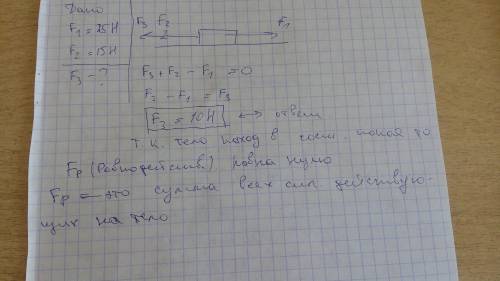 Дано
F₁ = 25Н
F₂ = 15Н
F₃ - ?
F₃ F₂ F₁
F₃ + F₂ - F₁ = 0
F₂ - F₁ = F₃
F₃ = 10Н ↔ ответ
Т.к. тело наход в сост. покоя то
Fр (Равнодейств.) равна нулю
Fр — это сумма всех сил действую-
щих на тело